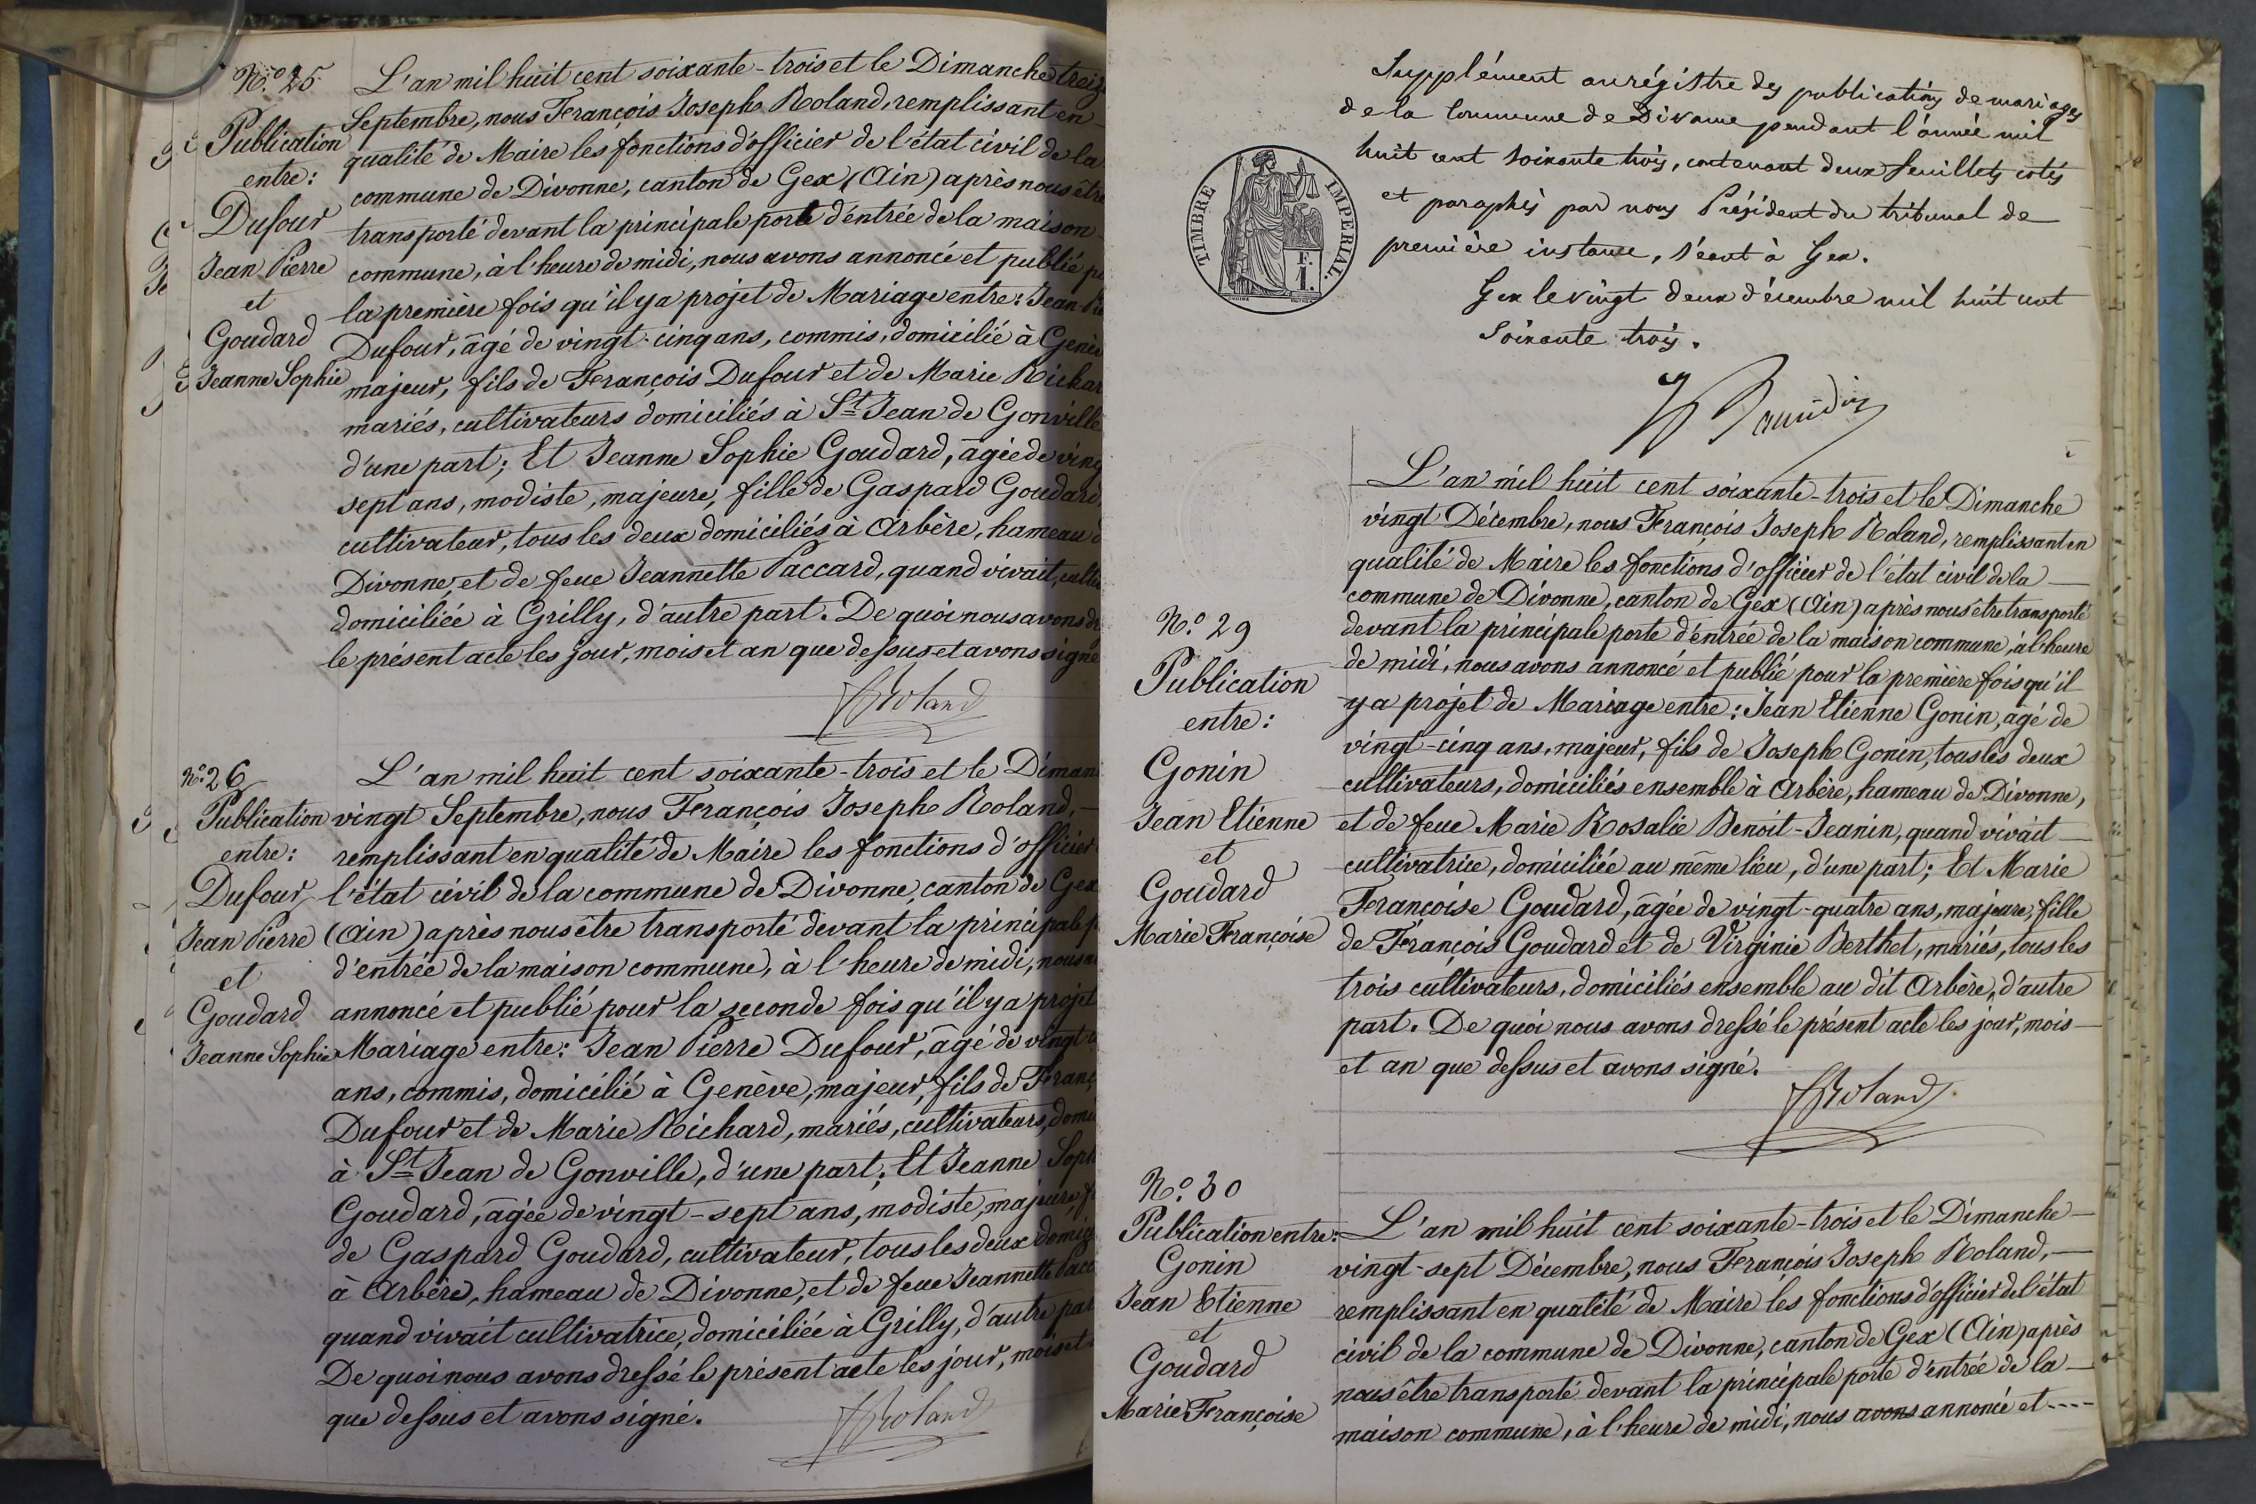 N.º 25
Publication
entre:
Dufour
Jean Pierre
et
Goudard
Jeanne Sophie
L'an mil huit cent soixante-trois et le Dimanche treize
Septembre, nous François Joseph Roland, remplissant en
qualité de Maire les fonctions d'officier de l'état civil de la
commune de Divonne, canton de Gex (Ain) après nous être
transporté devant la principale porte d'entrée de la maison
commune, à l'heure de midi, nous avons annoncé et publié
la première fois qu'il y a projet de Mariage entre: Jean
Dufour, âgé de vingt-cinq ans, commis, domicilié à Genè
majeur, fils de François Dufour et de Marie Richar
mariés, cultivateurs domiciliés à St Jean de Gonville
d'une part; Et Jeanne Sophie Goudard, âgée de ving
sept ans, modiste, majeure, fille de Gaspard Goudard,
cultivateur, tous les deux domiciliés à Arbère, hameau d
Divonne, et de feue Jeannette Paccard, quand vivait, culti
domiciliée à Grilly, d'autre part. De quoi nous avons d
le présent acte les jour, mois et an que dessus et avons signé
Roland
N.º 26
Publication
entre:
Dufour
Jean Pierre
et
Goudard
Jeanne Sophie
L'an mil huit cent soixante-trois et le Diman
vingt Septembre, nous François Joseph Roland,
remplissant en qualité de Maire les fonctions d'officier
l'état civil de la commune de Divonne, canton de Gex
(Ain) après nous être transporté devant la principale p
d'entrée de la maison commune, à l'heure de midi, nous a
annoncé et publié pour la seconde fois qu'il y a projet
Mariage entre: Jean Pierre Dufour, âgé de vingt-c
ans, commis, domicilié à Genève, majeur, fils de Franç
Dufour et de Marie Richard, mariés, cultivateurs, domi
à St Jean de Gonville, d'une part; Et Jeanne Soph
Goudard, âgée de vingt-sept ans, modiste, majeure, f
de Gaspard Goudard, cultivateur, tous les deux domici
à Arbère, hameau de Divonne, et de feue Jeannette Pacc
quand vivait cultivatrice, domiciliée à Grilly, d'autre par
De quoi nous avons dressé le présent acte les jour, mois et
que dessus et avons signé.
Roland
Supplément au régistre des publications de mariages
de la Commune de Divonne pendant l'année mil
huit cent soixante trois, contenant deux feuillets cotés
et paraphés par nous Président du tribunal de
première instance, séant à Gex.
Gex le vingt deux décembre mil huit cent
soixante trois.
TIMBRE IMPERIAL.
F.
1.
N.º 29
Publication
entre:
Gonin
Jean Etienne
et
Goudard
Marie Françoise
L'an mil huit cent soixante-trois et le Dimanche
vingt Décembre, nous François Joseph Roland, remplissant en
qualité de Maire les fonctions d'officier de l'état civil de la
commune de Divonne, canton de Gex (Ain) après nous être transporté
devant la principale porte d'entrée de la maison commune, à l'heure
de midi, nous avons annoncé et publié pour la première fois qu'il
y a projet de Mariage entre: Jean Etienne Gonin, âgé de
vingt-cinq ans, majeur, fils de Joseph Gonin, tous les deux
cultivateurs, domiciliés ensemble à Arbère, hameau de Divonne,
et de feue Marie Rosalie Benoit-Jeanin, quand vivait
cultivatrice, domiciliée au même lieu, d'une part; Et Marie
Françoise Goudard, âgée de vingt-quatre ans, majeure, fille
de François Goudard et de Virginie Berthet, mariés, tous les
trois cultivateurs, domiciliés ensemble au dit Arbère, d'autre
part. De quoi nous avons dressé le présent acte les jour, mois
et an que dessus et avons signé.
Roland
N.º 30
Publication entre:
Gonin
Jean Etienne
et
Goudard
Marie Françoise
L'an mil huit cent soixante-trois et le Dimanche
vingt-sept Décembre, nous François Joseph Roland,
remplissant en qualité de Maire les fonctions d'officier de l'état
civil de la commune de Divonne, canton de Gex (Ain) après
nous être transporté devant la principale porte d'entrée de la
maison commune, à l'heure de midi, nous avons annoncé et ----